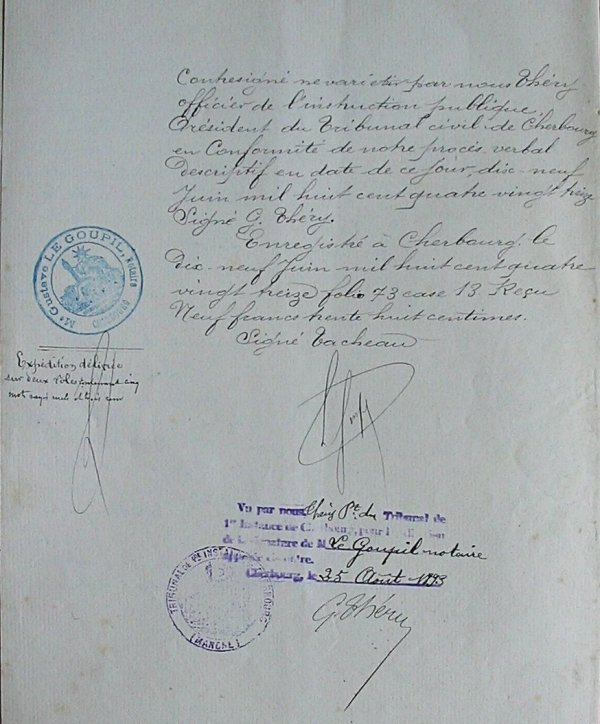 Contresigné ne varietur par nous Théry
officier de l'instruction publique,
Président du Tribunal civil de Cherbourg
en Conformité de notre procès verbal
Descriptif en date de ce jour, dix-neuf
Juin mil huit cent quatre vingt treize
Signé G. Théry.
Enregistré à Cherbourg, le
Dix-neuf Juin mil huit cent quatre
vingt treize folio 73 case 13 Reçu
Neuf francs trente huit centimes.
Signé Tacheau
Me Gustave LE GOUPIL, Notaire
Cherbourg
Expédition délivrée
sur deux rôles contenant cinq
mots rayés nuls
Vu par nous, Théry Pt. du Tribunal de
1re Instance de Cherbourg, pour
de la signature de M. Le Goupil notaire
Cherbourg, le 25 Août 1893
G. Théry
TRIBUNAL DE 1re INSTANCE
(MANCHE)